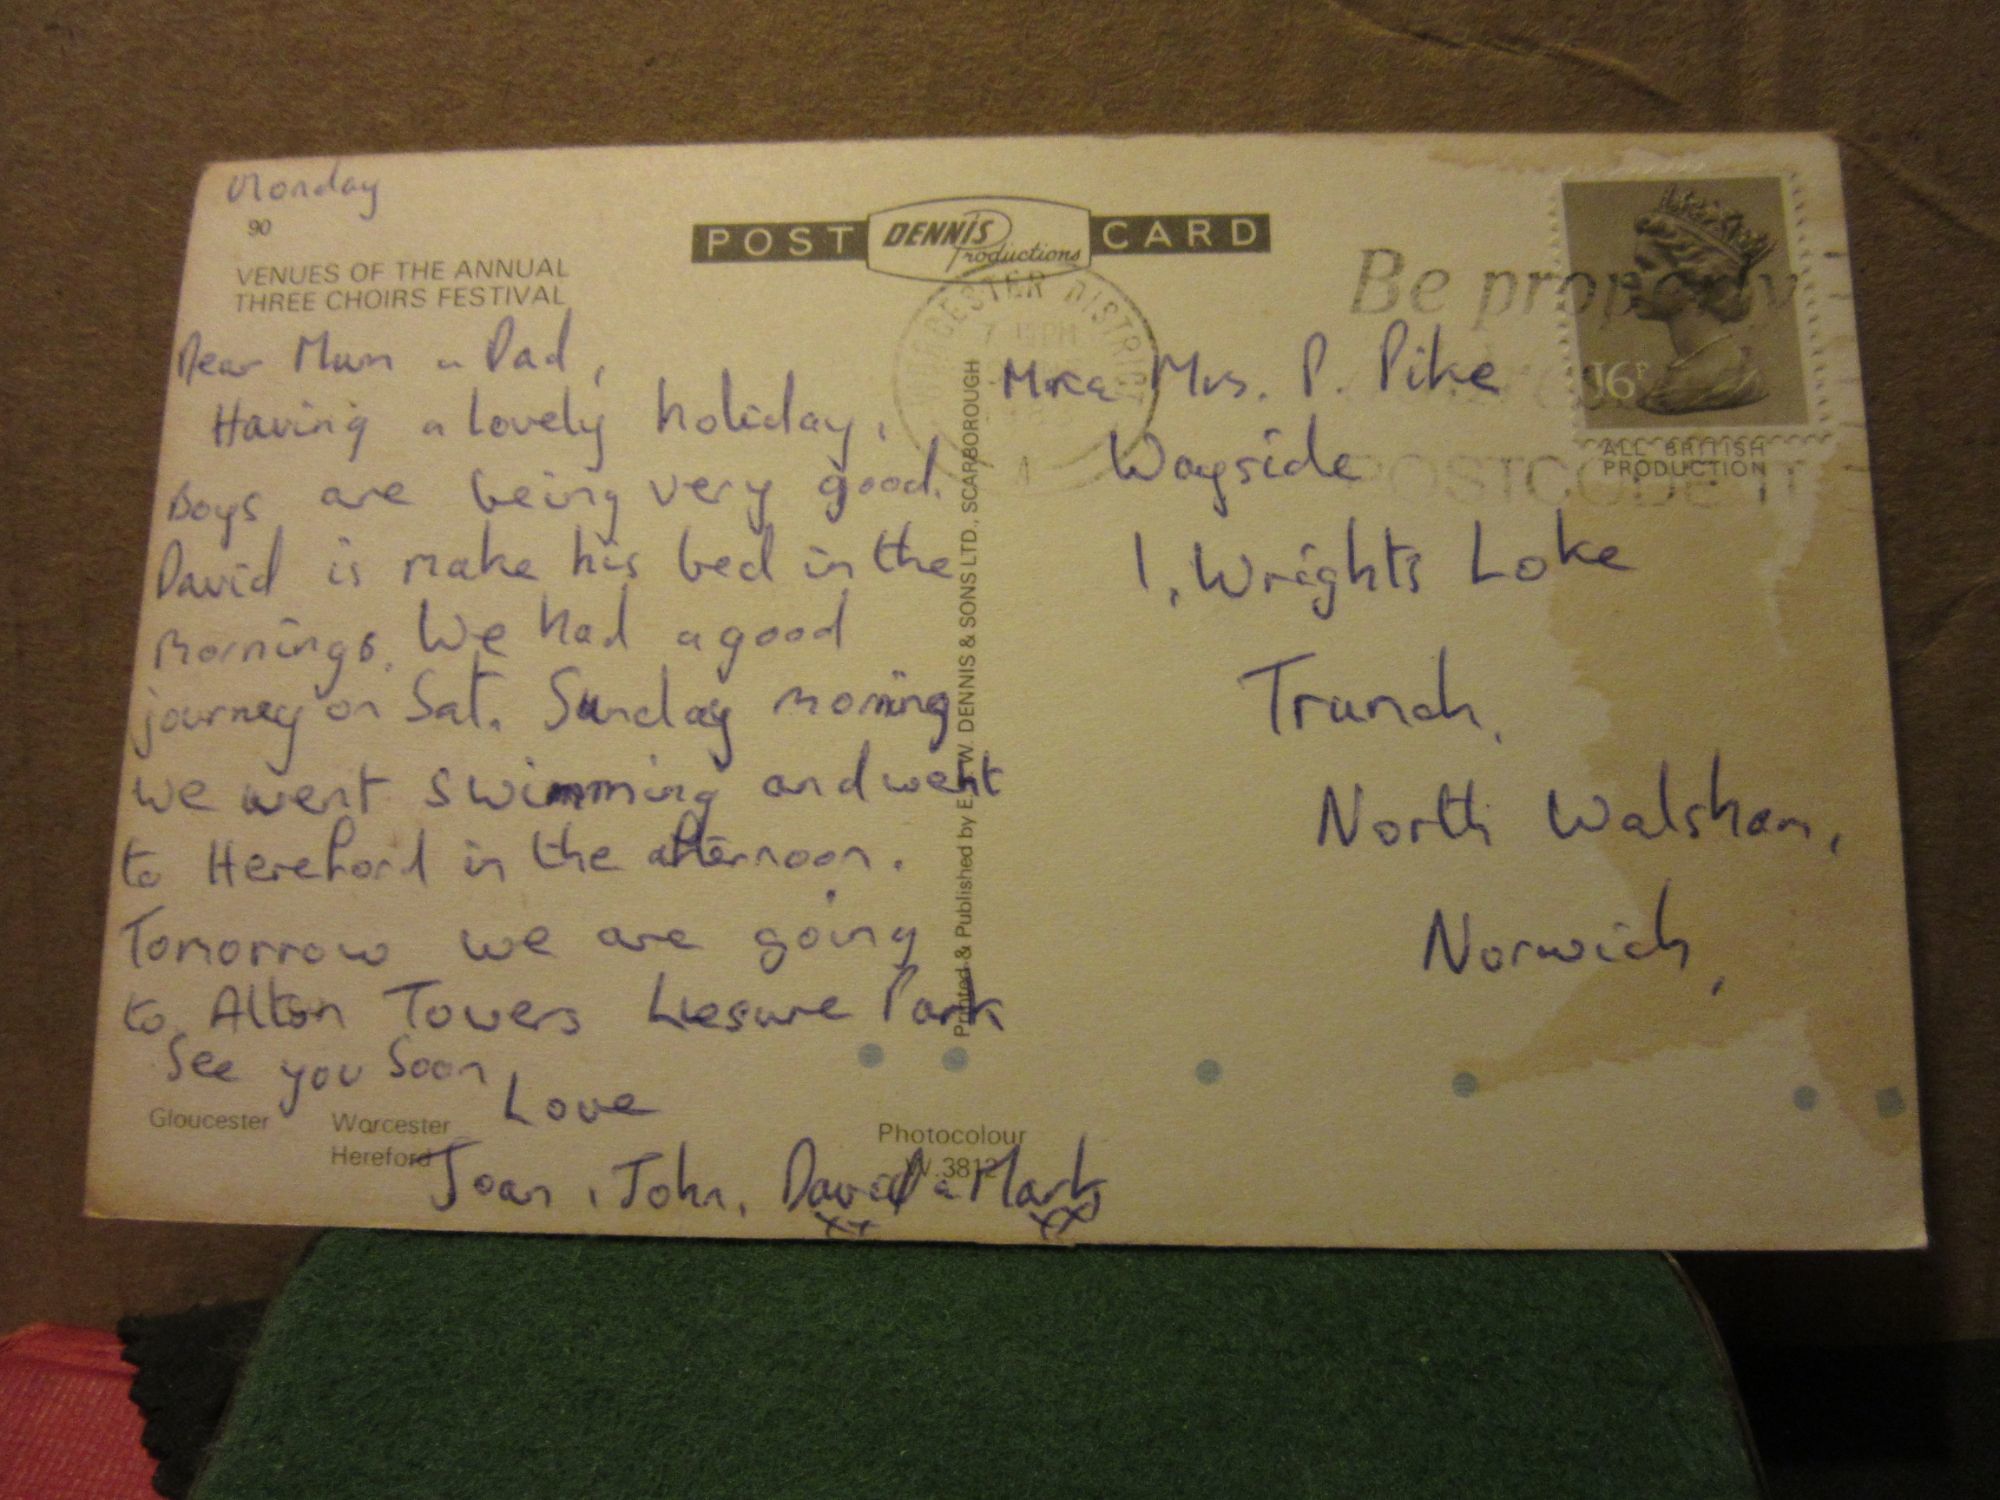 Monday
90
VENUES OF THE ANNUAL
THREE CHOIRS FESTIVAL
Dear Mum & Dad,
Having a lovely holiday.
Boys are being very good.
David is make his bed in the
mornings. We had a good
journey on Sat. Sunday morning
we went swimming and went
to Hereford in the afternoon.
Tomorrow we are going
to Alton Towers Liesure Park
See you Soon
Love
Joan, John, David & Mark
xx xx
Gloucester Worcester
Hereford
Photocolour
W.3812
POST DENNIS Productions CARD
Printed & Published by E.T.W. DENNIS & SONS LTD., SCARBOROUGH
WORCESTER DISTRICT
PM
A
Be properly
POSTCODE IT
16P
ALL BRITISH
PRODUCTION
Mr & Mrs. P. Pike
Wayside
1, Wrights Loke
Trunch,
North Walsham,
Norwich,